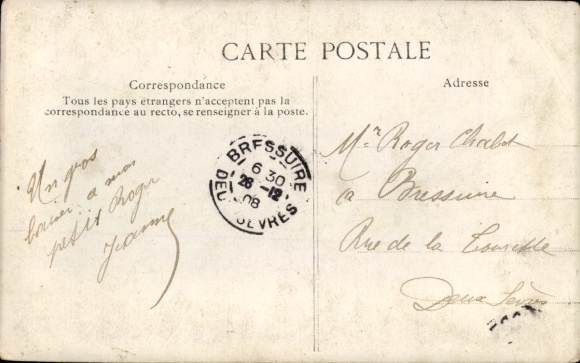 CARTE POSTALE
Correspondance
Tous les pays étrangers n'acceptent pas la
correspondance au recto, se renseigner à la poste.
Adresse
Un gros
baiser a mon
petit Roger
Jeanne
BRESSUIRE
6 30
26 -12
08
DEUX SÈVRES
Mr Roger
a Bressuire
Rue de la
Deux Sèvres